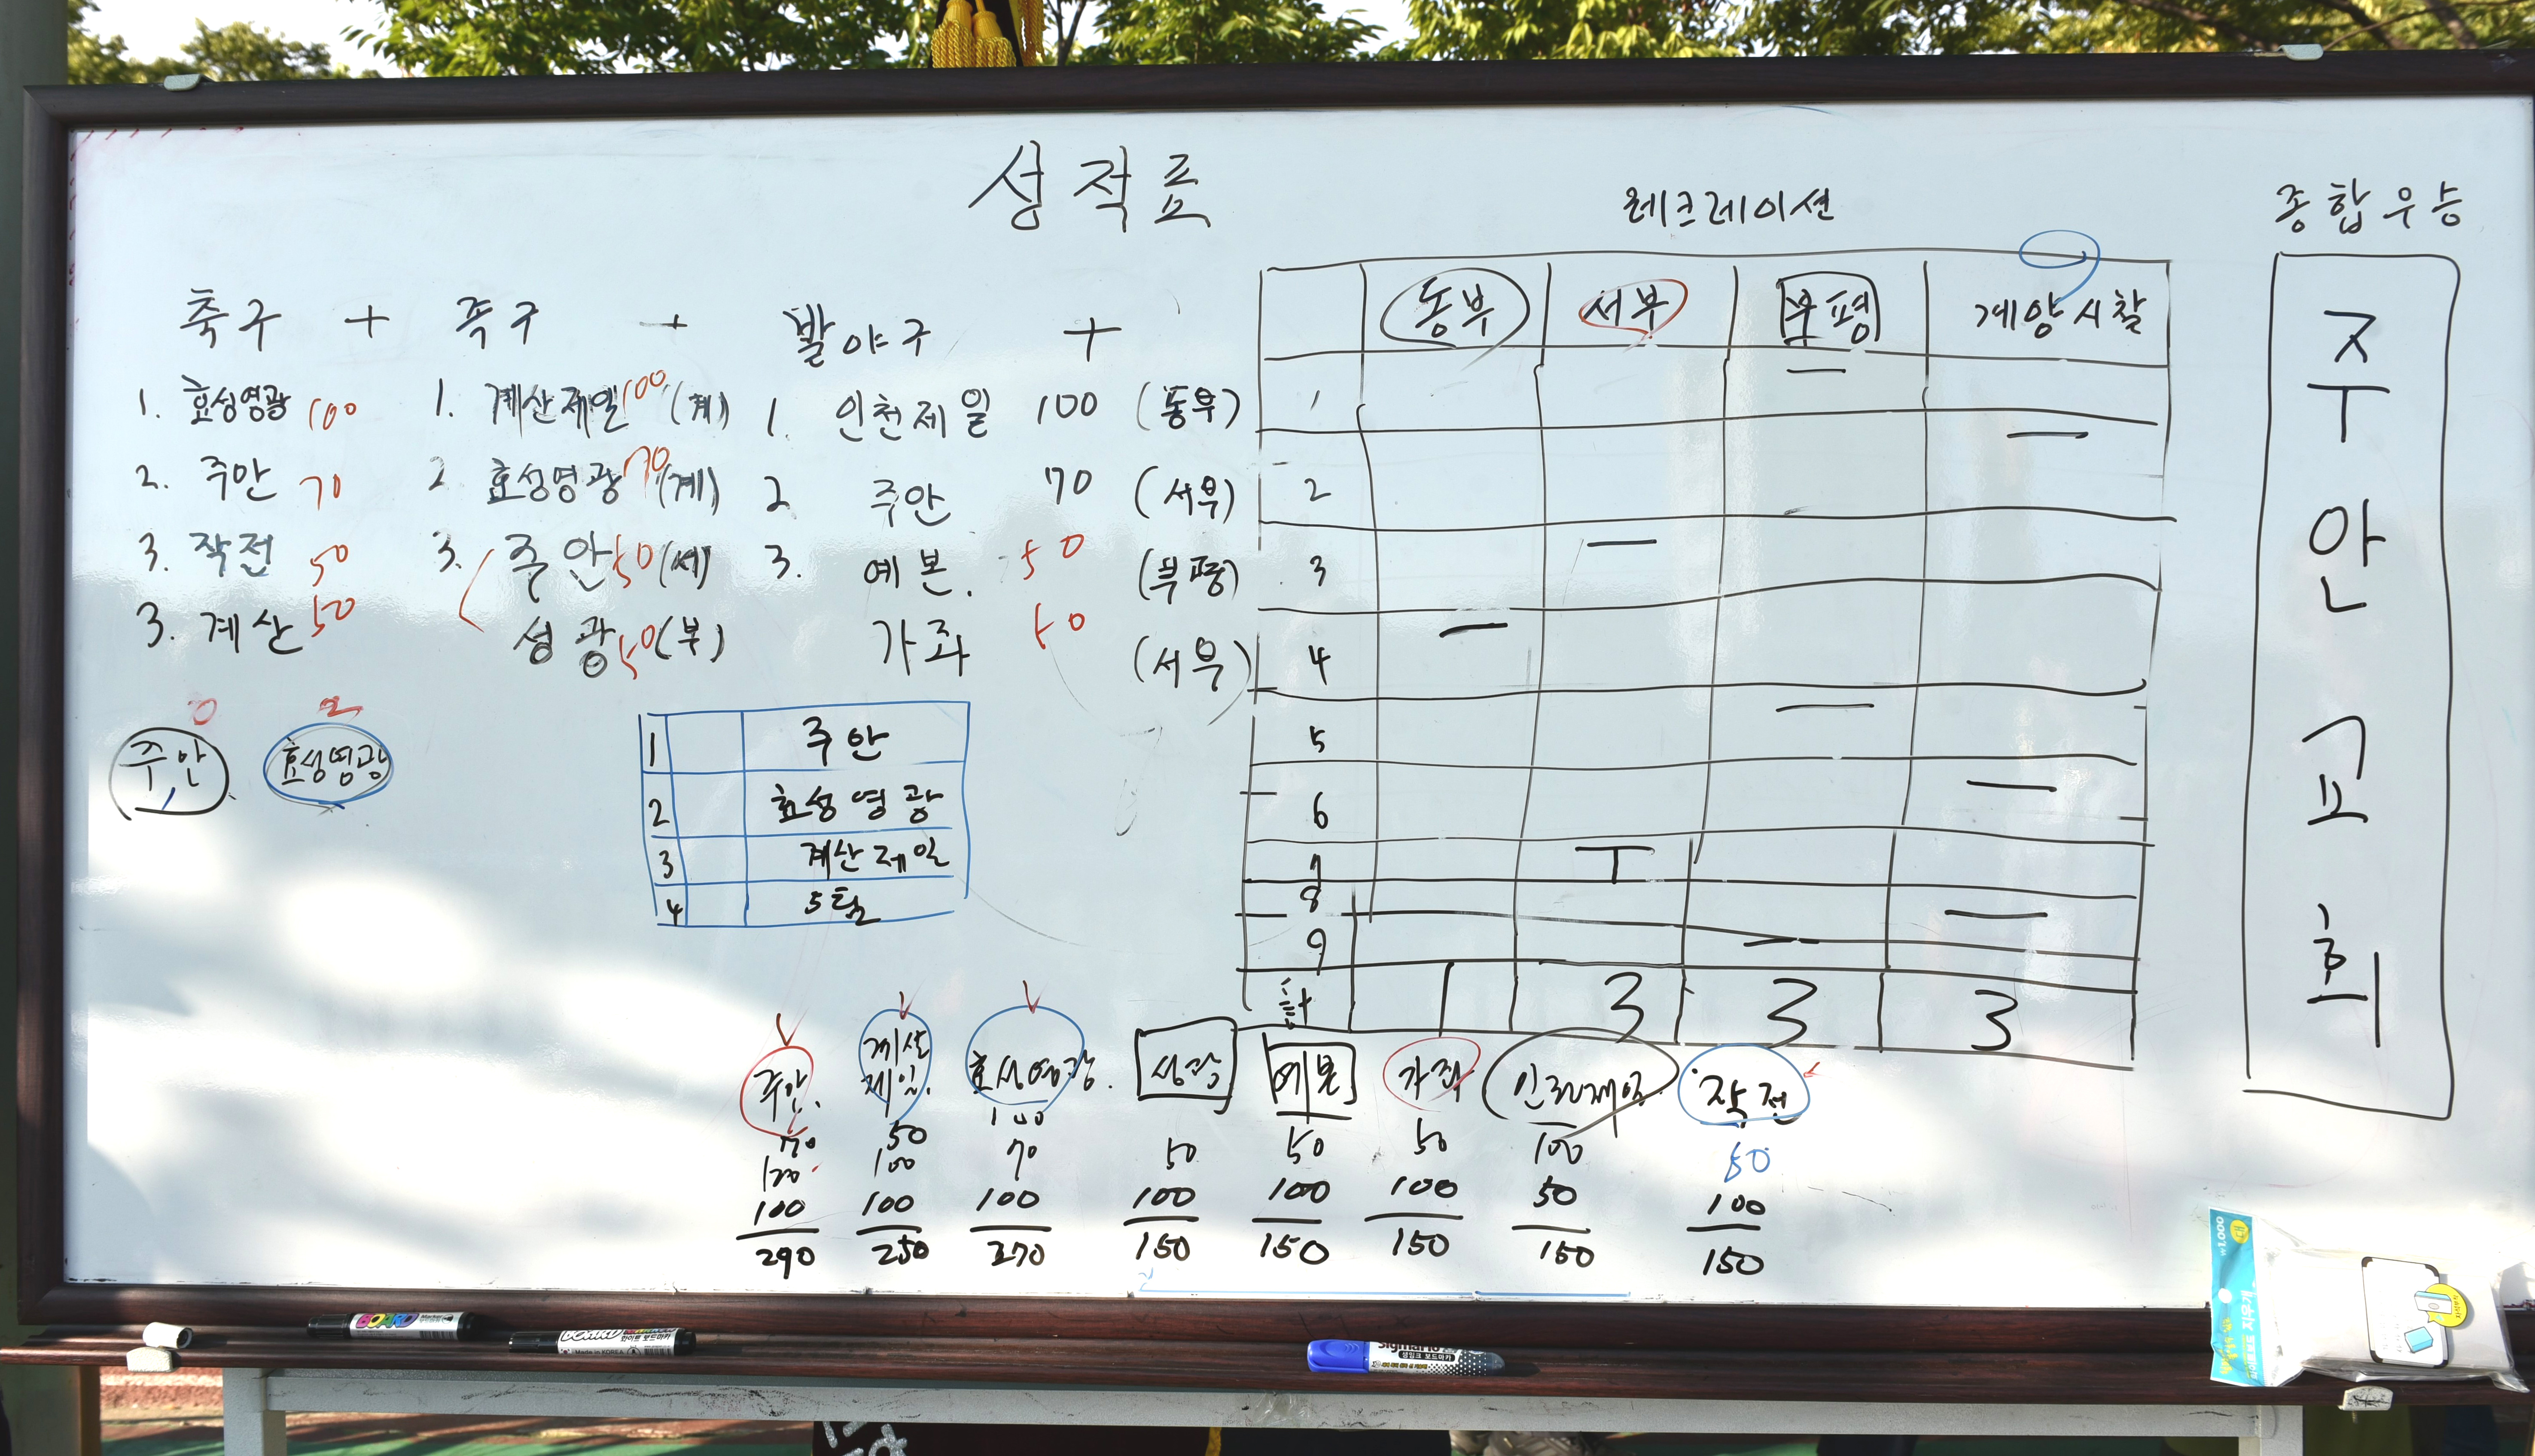 성적표
레크레이션
종합우승
축구 + 족구 + 발야구 +
1. 효성영광 100
2. 주안 70
3. 작전 50
3. 계산 50
1. 계산제일 100 (계)
2 효성영광 70 (계)
3. 주안 50 (서)
성광 50 (부)
1. 인천제일 100 (동부)
2 주안 70 (서부)
3. 예본. 50 (부평)
가좌 50 (서부)
0 2
주안 효성영광
1 주안
2 효성영광
3 계산제일
4 5팀
동부 서부 부평 계양시찰
1
2
3
4
5
6
7
8
9
計 1 3 3 3
주안교회
주안. 계산제일. 효성영광. 성광 예본 가좌 인천제일 작전
70 50 100 50 50 50 100 50
120 100 70 100 100 100 50 100
100 100 100
290 250 270 150 150 150 150 150
BOARD
BOARD
화이트 보드마카
Made in KOREA
생잉크 보드마카
₩1,000